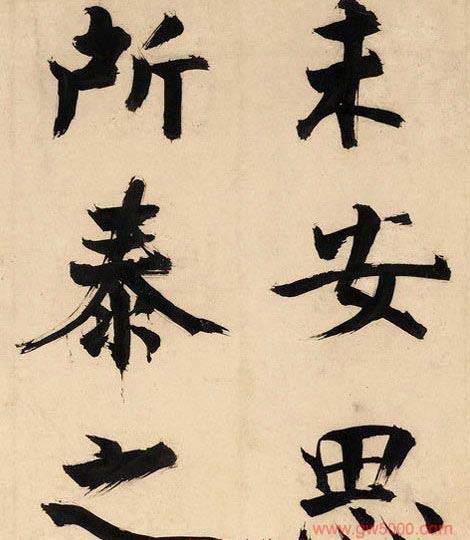 未安思
所泰之
www.gw5000.com